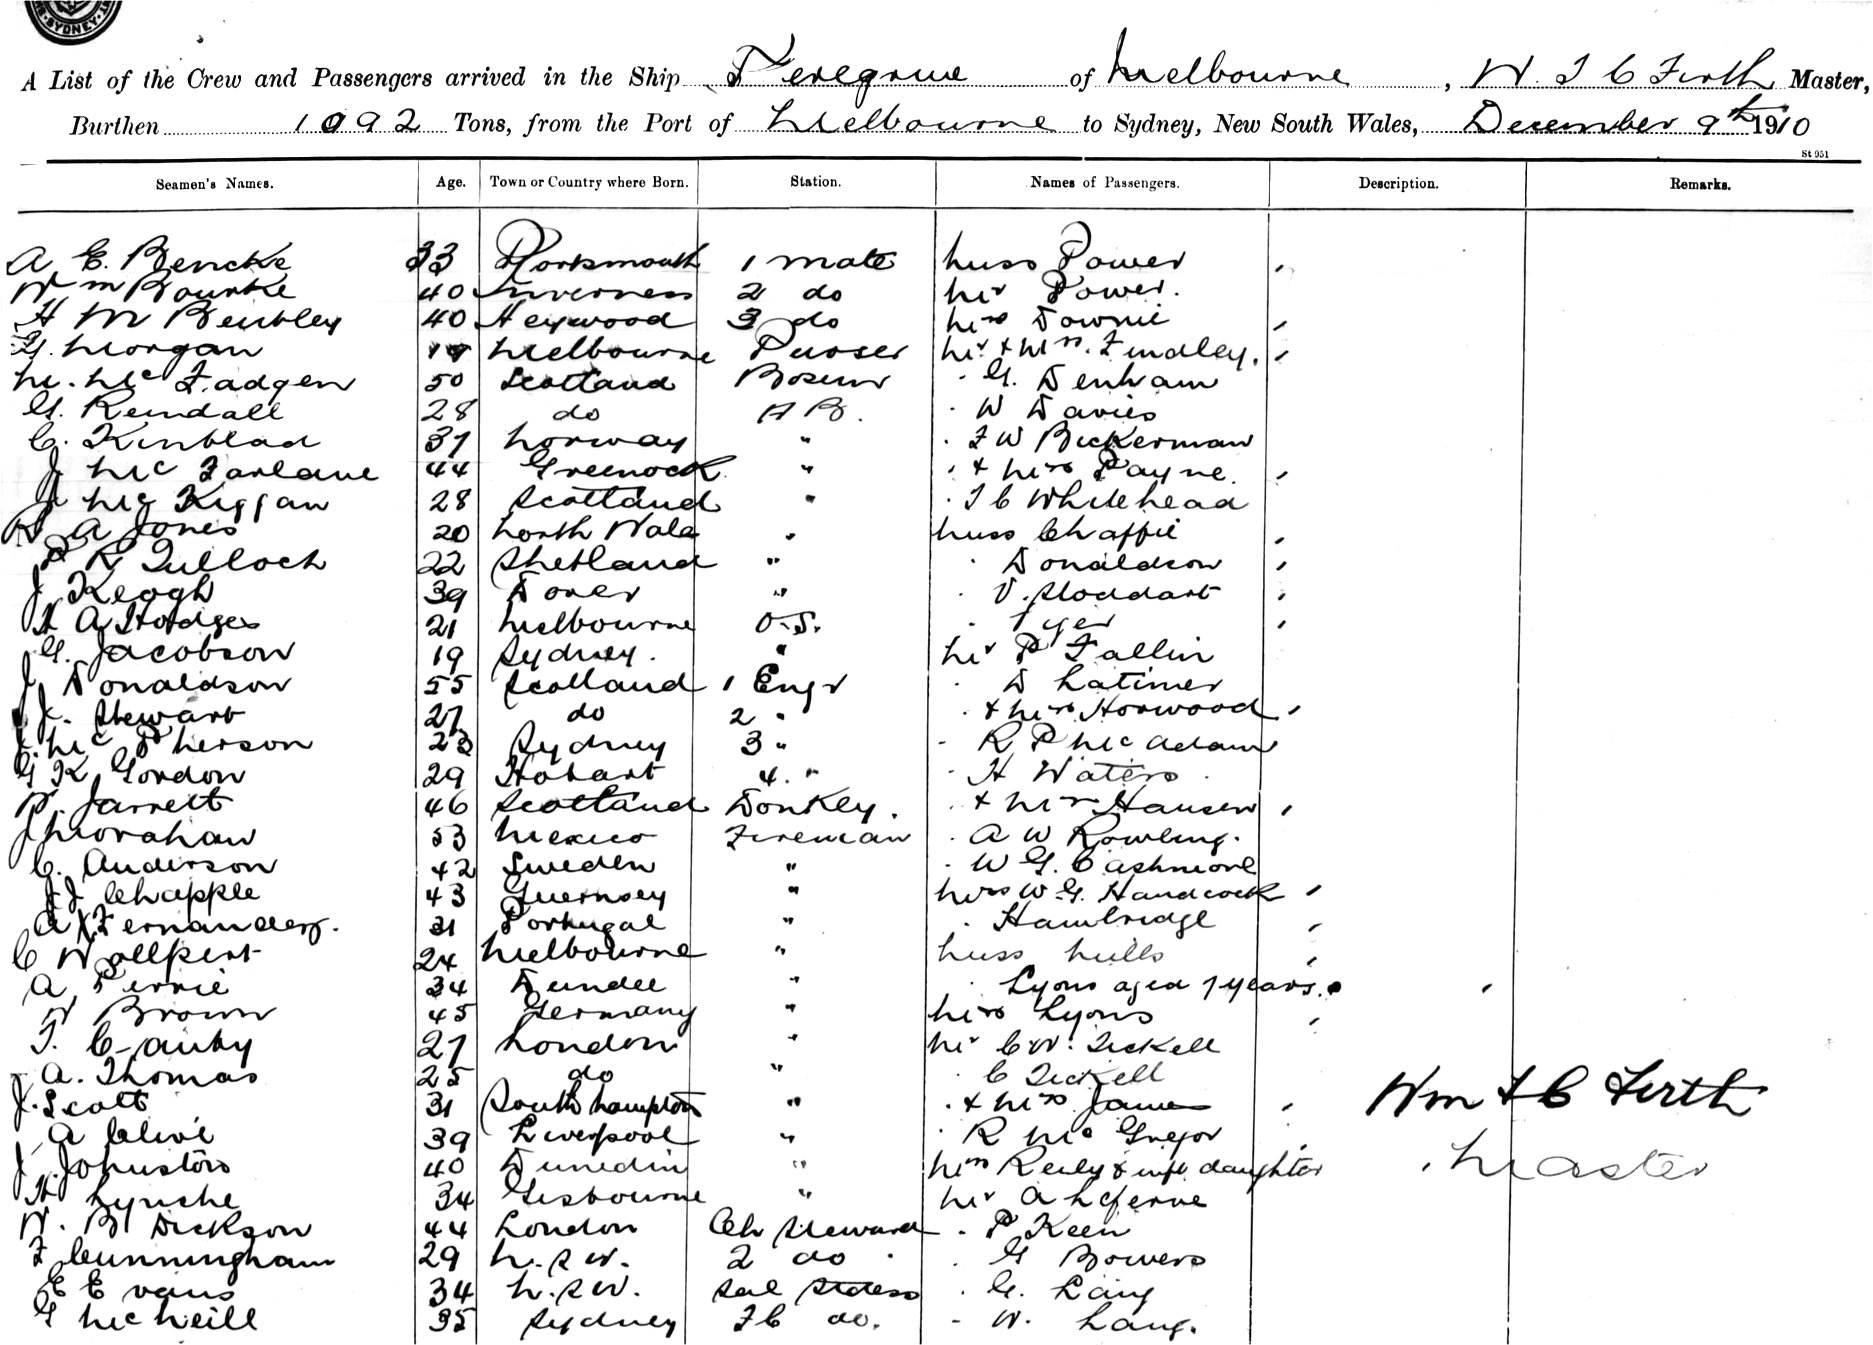 SYDNEY
A List of the Crew and Passengers arrived in the Ship Peregrine of Melbourne, W. T C Firth Master,
Burthen 1092 Tons, from the Port of Melbourne to Sydney, New South Wales, December 9th 1910
St 951
Seamen's Names. Age. Town or Country where Born. Station. Names of Passengers. Description. Remarks.
A E. Bencke 33 Portsmouth 1 mate Miss Power
Wm Bourke 40 Inverness 2 do Mr Power.
H M Beubley 40 Heywood 3 do Mrs Downie
G. Morgan 19 Melbourne Purser Mr & Mrs. Findley.
M. Mc Fadgen 50 Scotland Bosun " G. Denham
G. Rendall 28 do AB. " W Davies
C. Kinblad 37 Norway " " F W Bickerman
J Mc Farlane 44 Greenock " " & Mrs Payne
J Mc Kiggan 28 Scotland " " T C Whitehead
R A Jones 20 North Wales " Miss Chaffie
P R Tulloch 22 Shetland " " Donaldson
J Keogh 39 Dover " " V. Stoddart
H A Hodges 21 Melbourne O.S. " Tyer
G. Jacobson 19 Sydney. " Mr P Fallin
J Donaldson 55 Scotland 1 Engr " D Latimer
J. Stewart 27 do 2 " " & Mrs Horwood
J. Mc Pherson 23 Sydney 3 " " R P McAdam
G K Gordon 29 Hobart 4. " " H Waters
P. Jarrett 46 Scotland Donkey. " & Mrs Hansen
J Morahan 53 Mexico Fireman " A W Rowling.
C. Anderson 42 Sweden " " W G. Cashmore
J J Chapple 43 Guernsey " Mrs W. G. Handcock
A X Fernanderz. 31 Portugal " " Hambridge
C Wallpert 24 Melbourne " Miss Mills
A Pirrie 34 Dundee " " Lyons aged 7 years.
W Brown 45 Germany " Mrs Lyons
T. Canby 27 London " Mr C W. Tickell
A. Thomas 25 do " " C Tickell
J. Scott 31 Southhampton " " & Mrs James Wm T C Firth
A Clive 39 Liverpool " " R Mc Gregor
J Johnston 40 Dunedin " Mrs Reily & inft daughter Master
H Lynshe 34 Gisbourne " Mr A Leferne
W. B Dickson 44 London Ch Steward " P Keen
F Cunningham 29 N.S.W. 2 do " G Bowers
E Evans 34 N.S.W. Sal Stdess " G. Lang
G McNeill 35 Sydney F C do. " W. Lang.